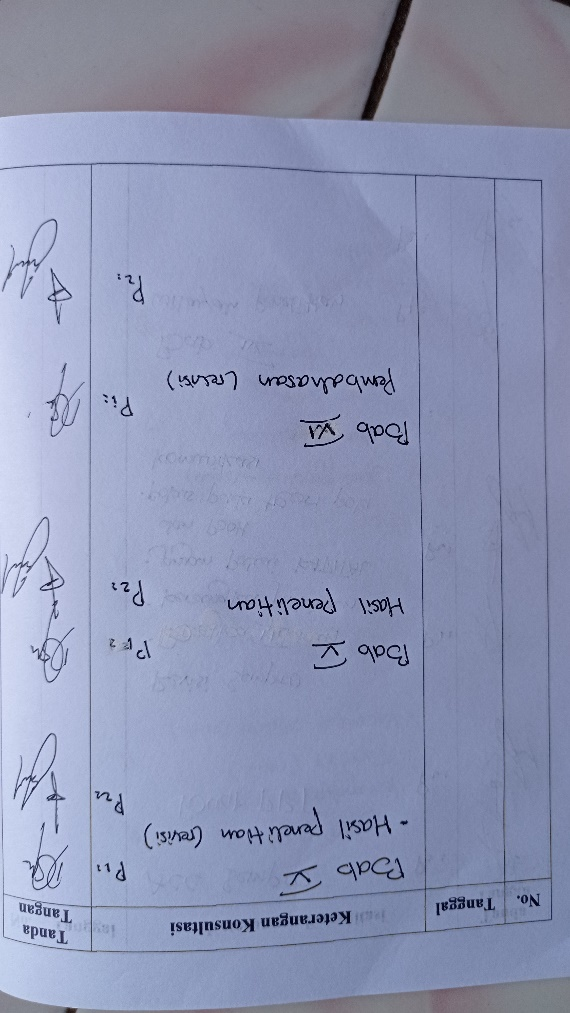 No. Tanggal Keterangan Konsultasi Tanda Tangan
Bab V P1:
- Hasil penelitian (revisi)
P2:
Bab V P1:
Hasil penelitian P2:
Bab VI P1:
Pembahasan (revisi)
P2: